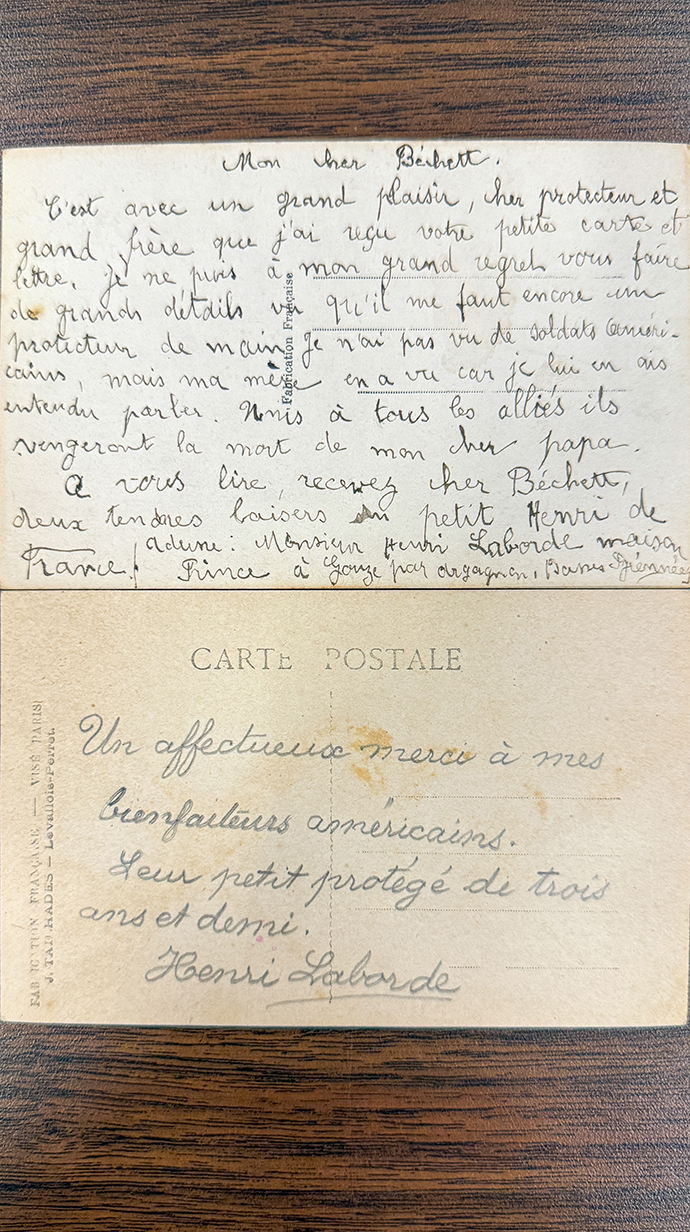 Mon cher Béchett.
C'est avec un grand plaisir, cher protecteur et
grand frère que j'ai reçu votre petite carte et
lettre. Je ne puis à mon grand regret vous faire
de grands détails vu qu'il me faut encore un
protecteur de main Je n'ai pas vu de soldats Améri-
cains, mais ma mère en a vu car je lui en ais
entendu parler. Unis à tous les alliés ils
vengeront la mort de mon cher papa.
A vous lire, recevez cher Béchett,
deux tendres baisers du petit Henri de
France!
Adresse: Monsieur Henri Laborde maison
Prince à Gouze par Argagnon, Basses-Pyrénnées
Fabrication Française
CARTE POSTALE
Un affectueux merci à mes
bienfaiteurs américains.
Leur petit protégé de trois
ans et demi.
Henri Laborde
FABRICATION FRANÇAISE — VISÉ PARIS
HADES — Levallois-Perret.